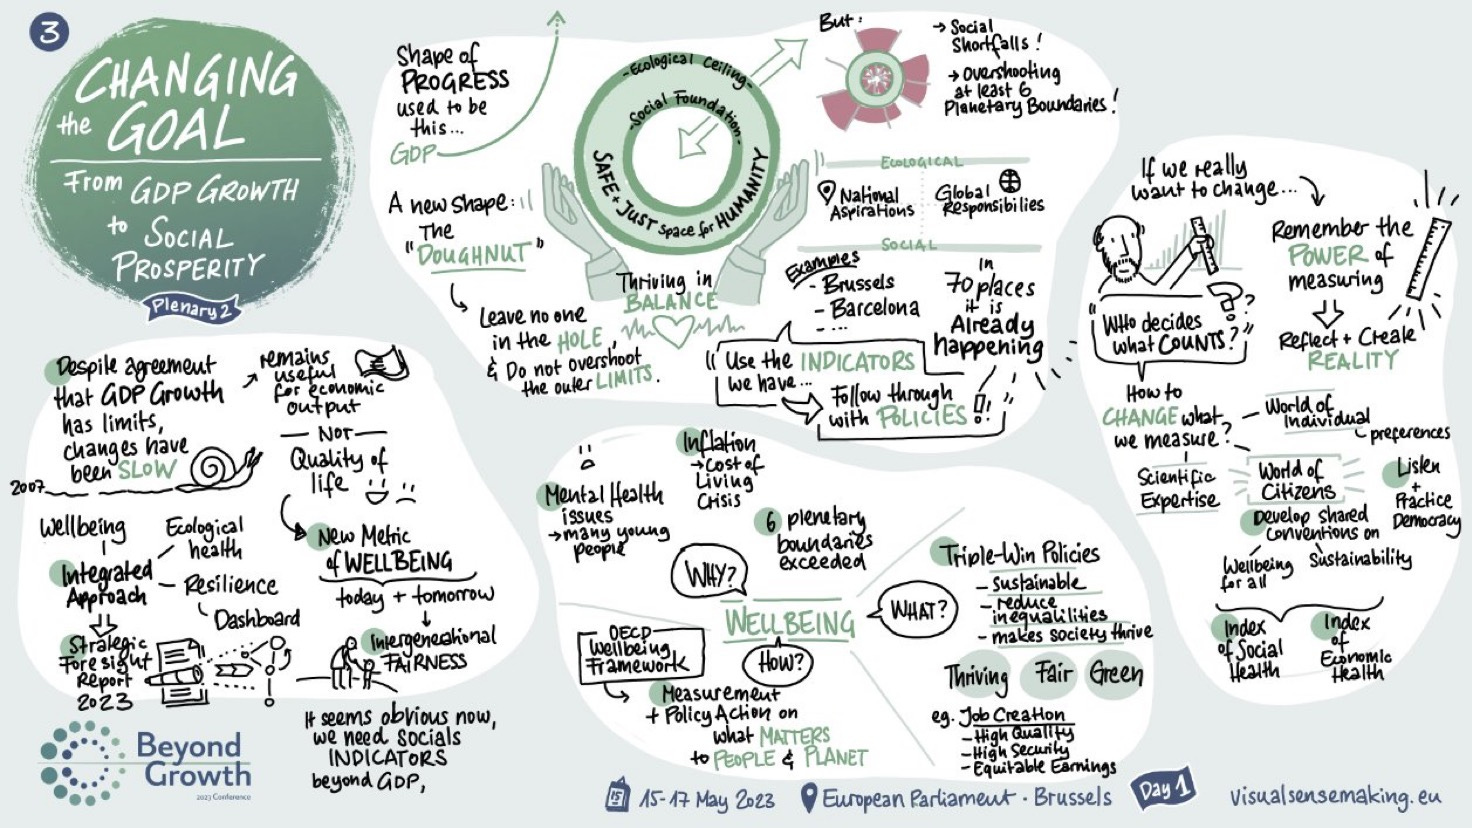 3
CHANGING
the GOAL
From GDP GROWTH
to SOCIAL
PROSPERITY
Plenary 2
Shape of
PROGRESS
used to be
this...
GDP
A new shape:
The
"DOUGHNUT"
Leave no one
in the HOLE,
& Do not overshoot
the outer LIMITS.
- Ecological Ceiling -
- Social Foundation -
SAFE + JUST Space for HUMANITY
Thriving in
BALANCE
But:
→ Social
Shortfalls!
→ Overshooting
at least 6
Planetary Boundaries!
ECOLOGICAL
National
Aspirations
Global
Responsibilies
SOCIAL
Examples
- Brussels
- Barcelona
- ...
In
70 places
it is
Already
happening
"Use the INDICATORS
we have...
Follow through
with POLICIES!"
If we really
want to change...
Remember the
POWER of
measuring
Reflect + Create
REALITY
"WHO decides
what COUNTS?"
?
How to
CHANGE what
we measure?
World of
Individual
preferences
Scientific
Expertise
World of
Citizens
Listen
+
Practice
Democracy
Develop shared
Conventions on
Wellbeing
for all
Sustainability
Index
of Social
Health
Index
of
Economic
Health
Despite agreement
that GDP Growth
has limits,
changes have
been SLOW
2007
remains
useful
for economic
output
- NOT -
Quality of
life
New Metric
of WELLBEING
today + tomorrow
Intergenerational
FAIRNESS
Wellbeing
Integrated
Approach
Ecological
health
Resilience
Dashboard
Strategic
Foresight
Report
2023
It seems obvious now,
we need socials
INDICATORS
beyond GDP,
Mental Health
issues
→ many young
people
Inflation
→ Cost of
Living
Crisis
6 plenetary
boundaries
exceeded
WHY?
WELLBEING
WHAT?
HOW?
OECD
Wellbeing
Framework
Measurement
+ Policy Action on
what MATTERS
to PEOPLE & PLANET
Triple-Win Policies
- sustainable
- reduce
inequalities
- makes society thrive
Thriving Fair Green
eg. Job Creation
- High Quality
- High Security
- Equitable Earnings
Beyond
Growth
2023 Conference
15
15-17 May 2023
European Parliament · Brussels
Day 1
visualsensemaking.eu